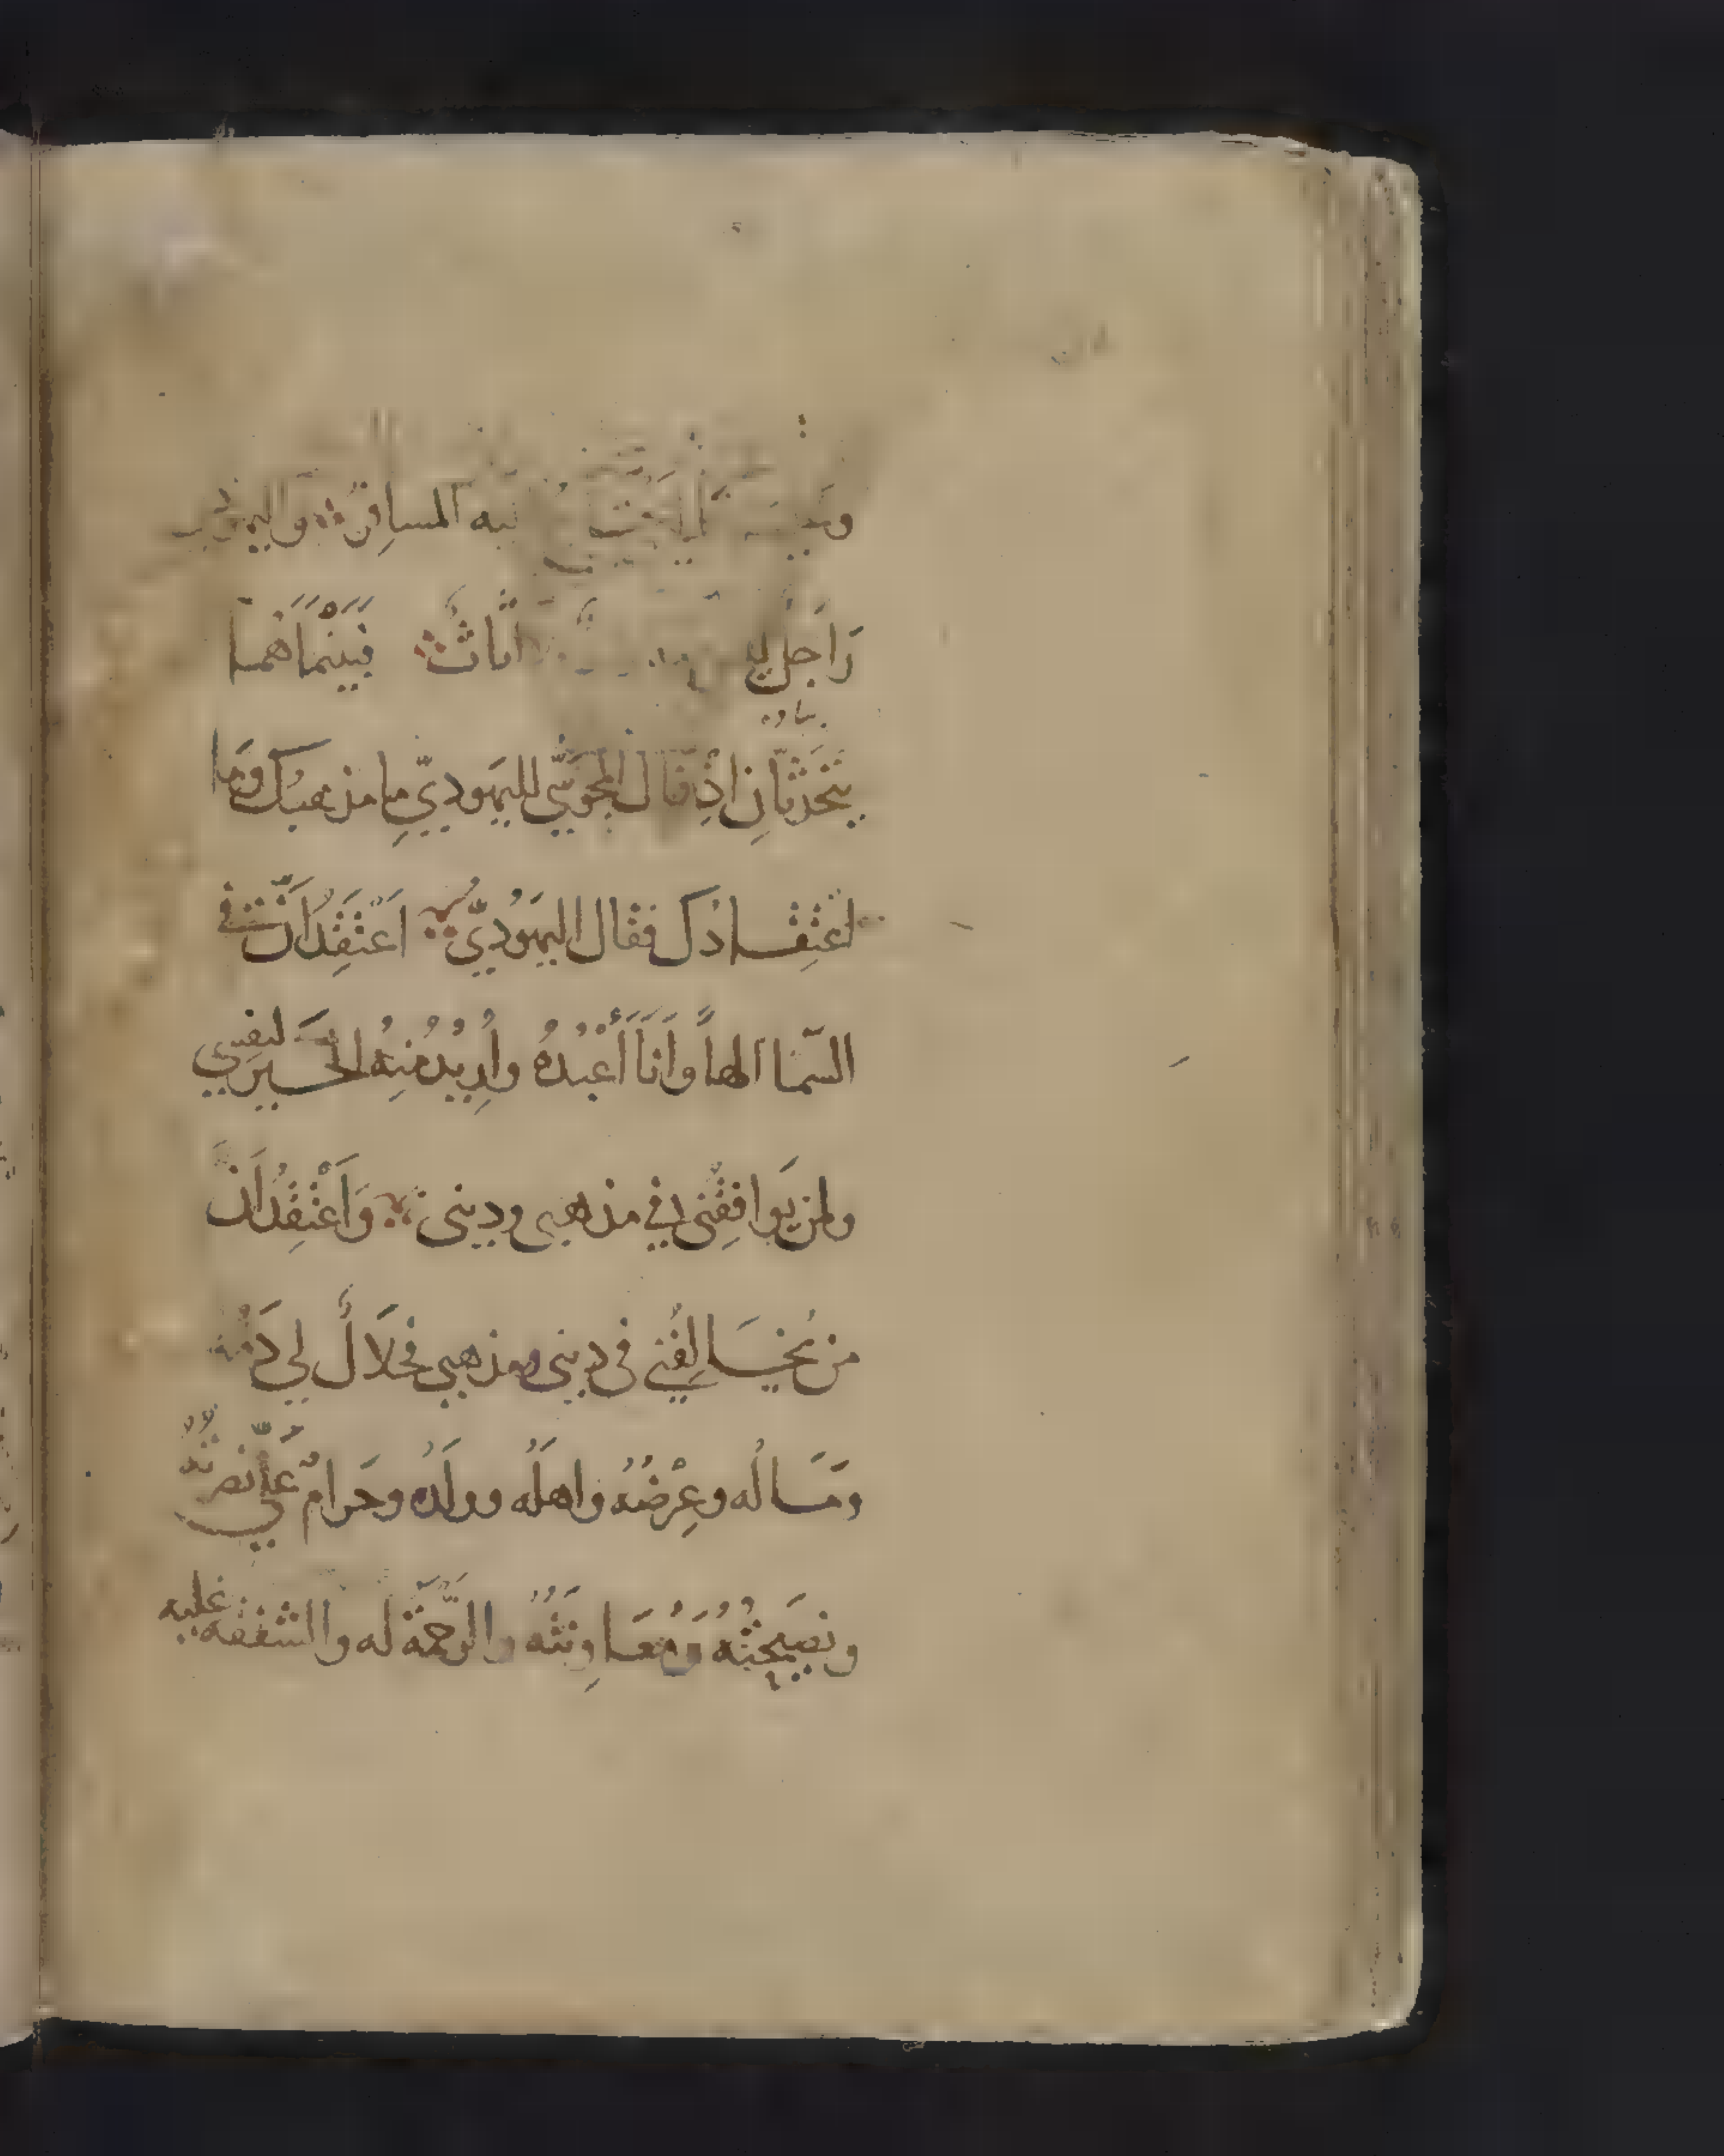 به المسافر واليهودي
راجل اثاث فبينما هما
يتحدثان اذ قال المجوسي لليهودي ما مذهبك وما
اعتقادك فقال اليهودي اعتقد ان في
السما الها وانا أعبده واريد منه الخير لنفسي
ولمن يوافقني في مذهبي وديني واعتقد ان
من يخالفني في ديني ومذهبي فحلال لي دمه
وماله وعرضه واهله وولده وحرام علي نصرته
ونصيحته ومعاونته والرحمة له والشفقه عليه